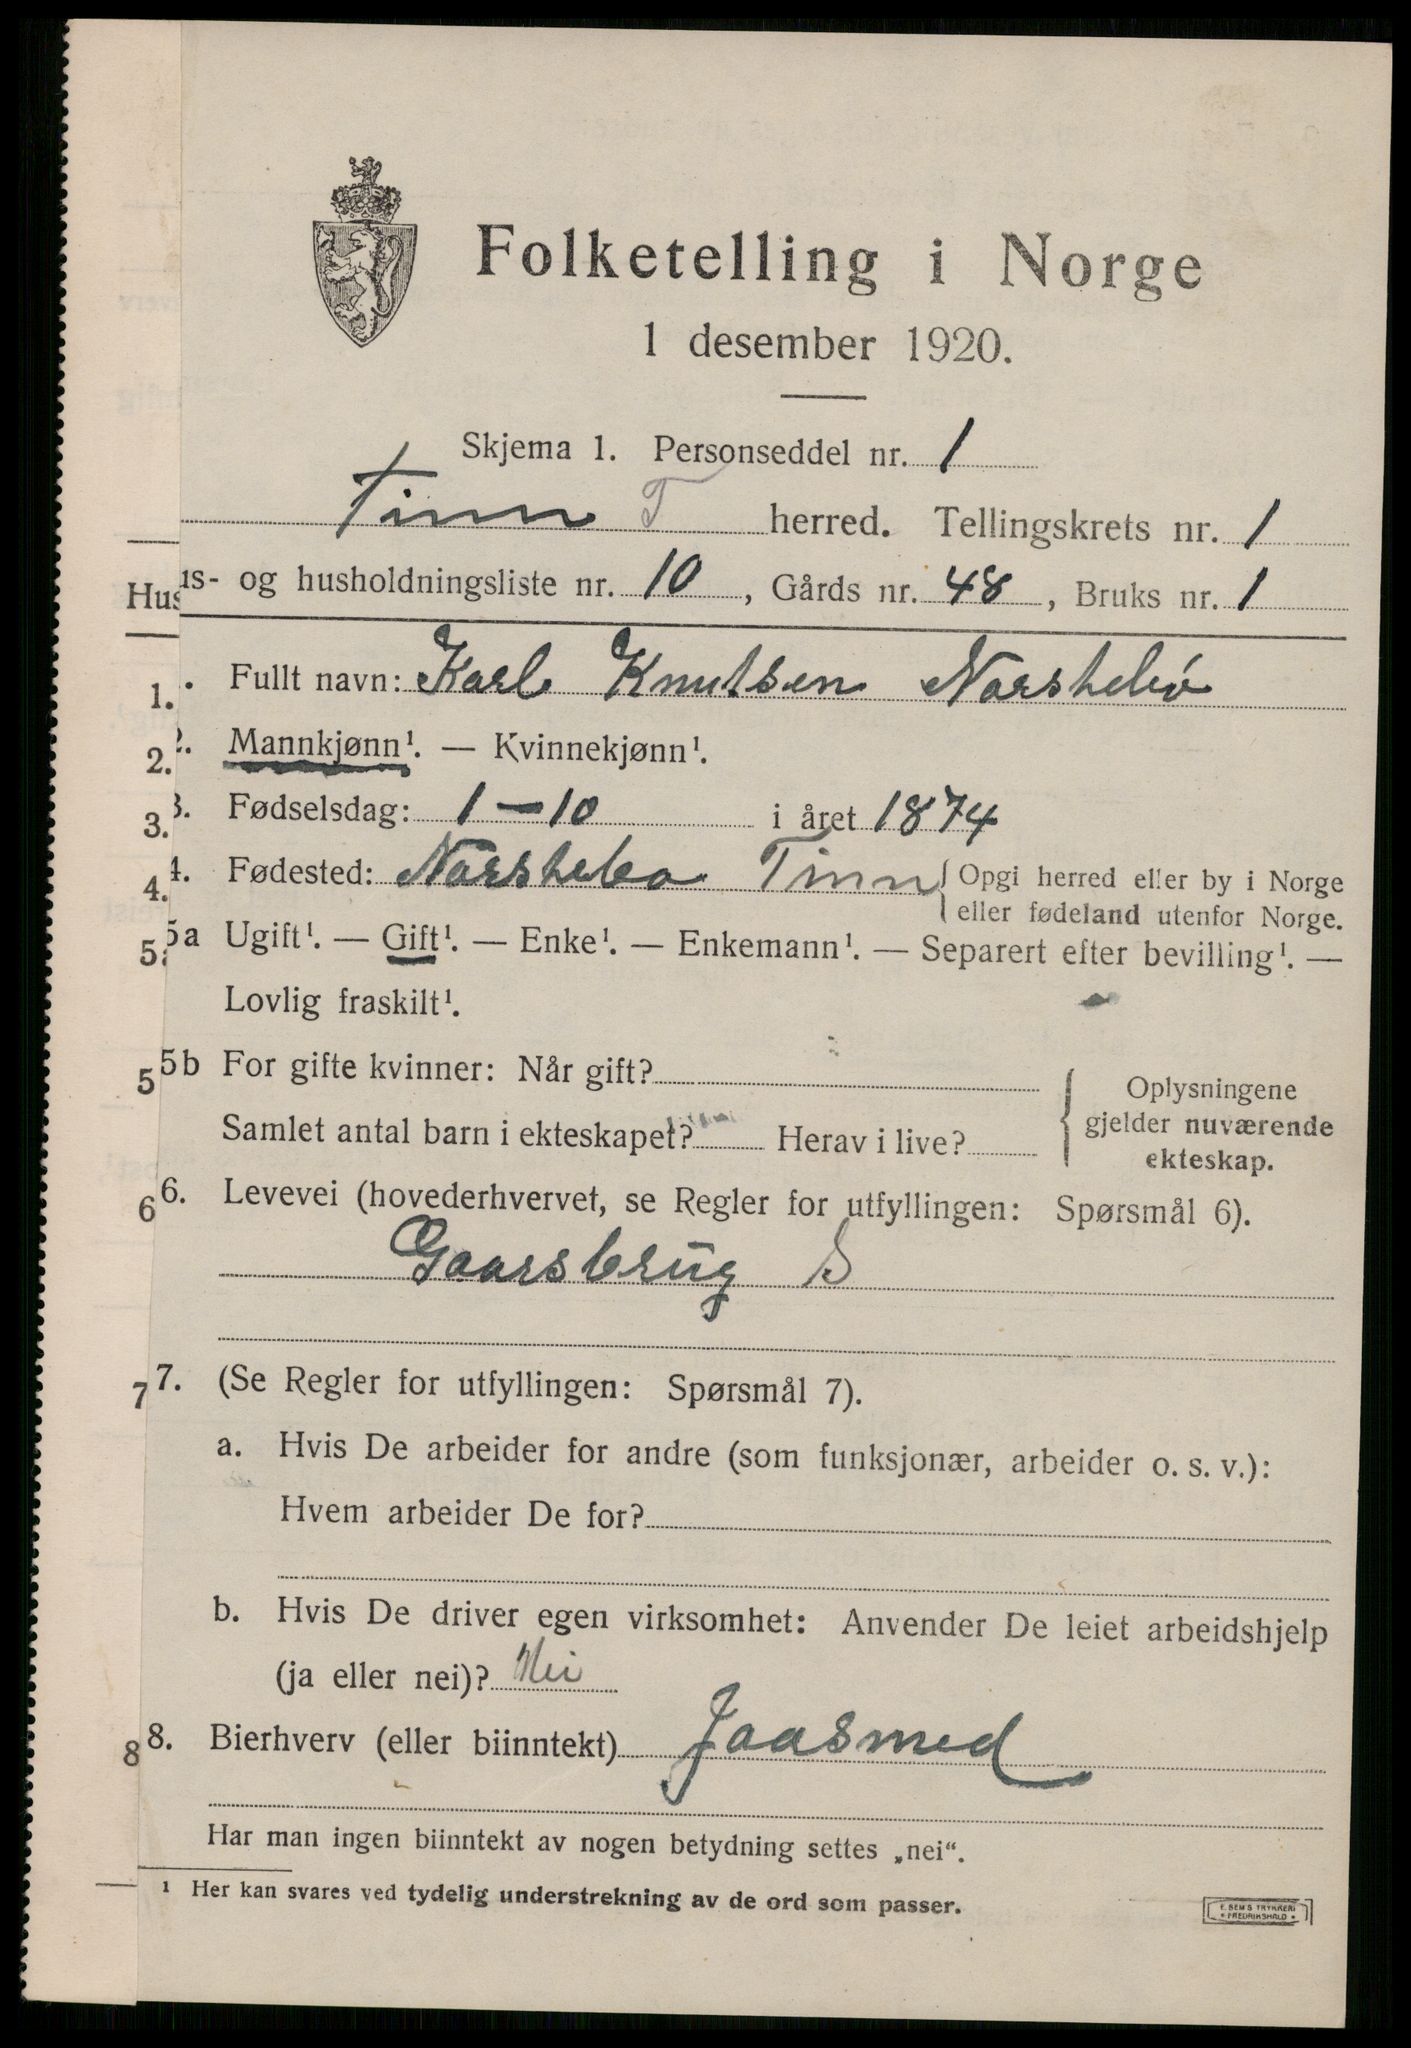 Folketelling i Norge
1 desember 1920.
Skjema 1. Personseddel nr. 1
Tinn T herred. Tellingskrets nr. 1
Hus us- og husholdningsliste nr. 10, Gårds nr. 48, Bruks nr. 1
1. . Fullt navn: Karl Knutsen Norstebø
2. 2. Mannkjønn¹. — Kvinnekjønn¹.
3. 3. Fødselsdag: 1-10 i året 1874
4. 4. Fødested: Norstebø Tinn { Opgi herred eller by i Norge
eller fødeland utenfor Norge.
5a 5a Ugift¹. — Gift¹. — Enke¹. — Enkemann¹. — Separert efter bevilling¹. —
Lovlig fraskilt¹.
5 5b For gifte kvinner: Når gift?
Samlet antal barn i ekteskapet? Herav i live?
{ Oplysningene
gjelder nuværende
ekteskap.
6 6. Levevei (hovederhvervet, se Regler for utfyllingen: Spørsmål 6).
Gaarsbrug S
7 7. (Se Regler for utfyllingen: Spørsmål 7).
a. Hvis De arbeider for andre (som funksjonær, arbeider o. s. v.):
Hvem arbeider De for?
b. Hvis De driver egen virksomhet: Anvender De leiet arbeidshjelp
(ja eller nei)? Nei
8 8. Bierhverv (eller biinntekt) Jaasmed
Har man ingen biinntekt av nogen betydning settes „nei“.
¹ Her kan svares ved tydelig understrekning av de ord som passer.
E. SEM'S TRYKKERI
• FREDRIKSHALD •